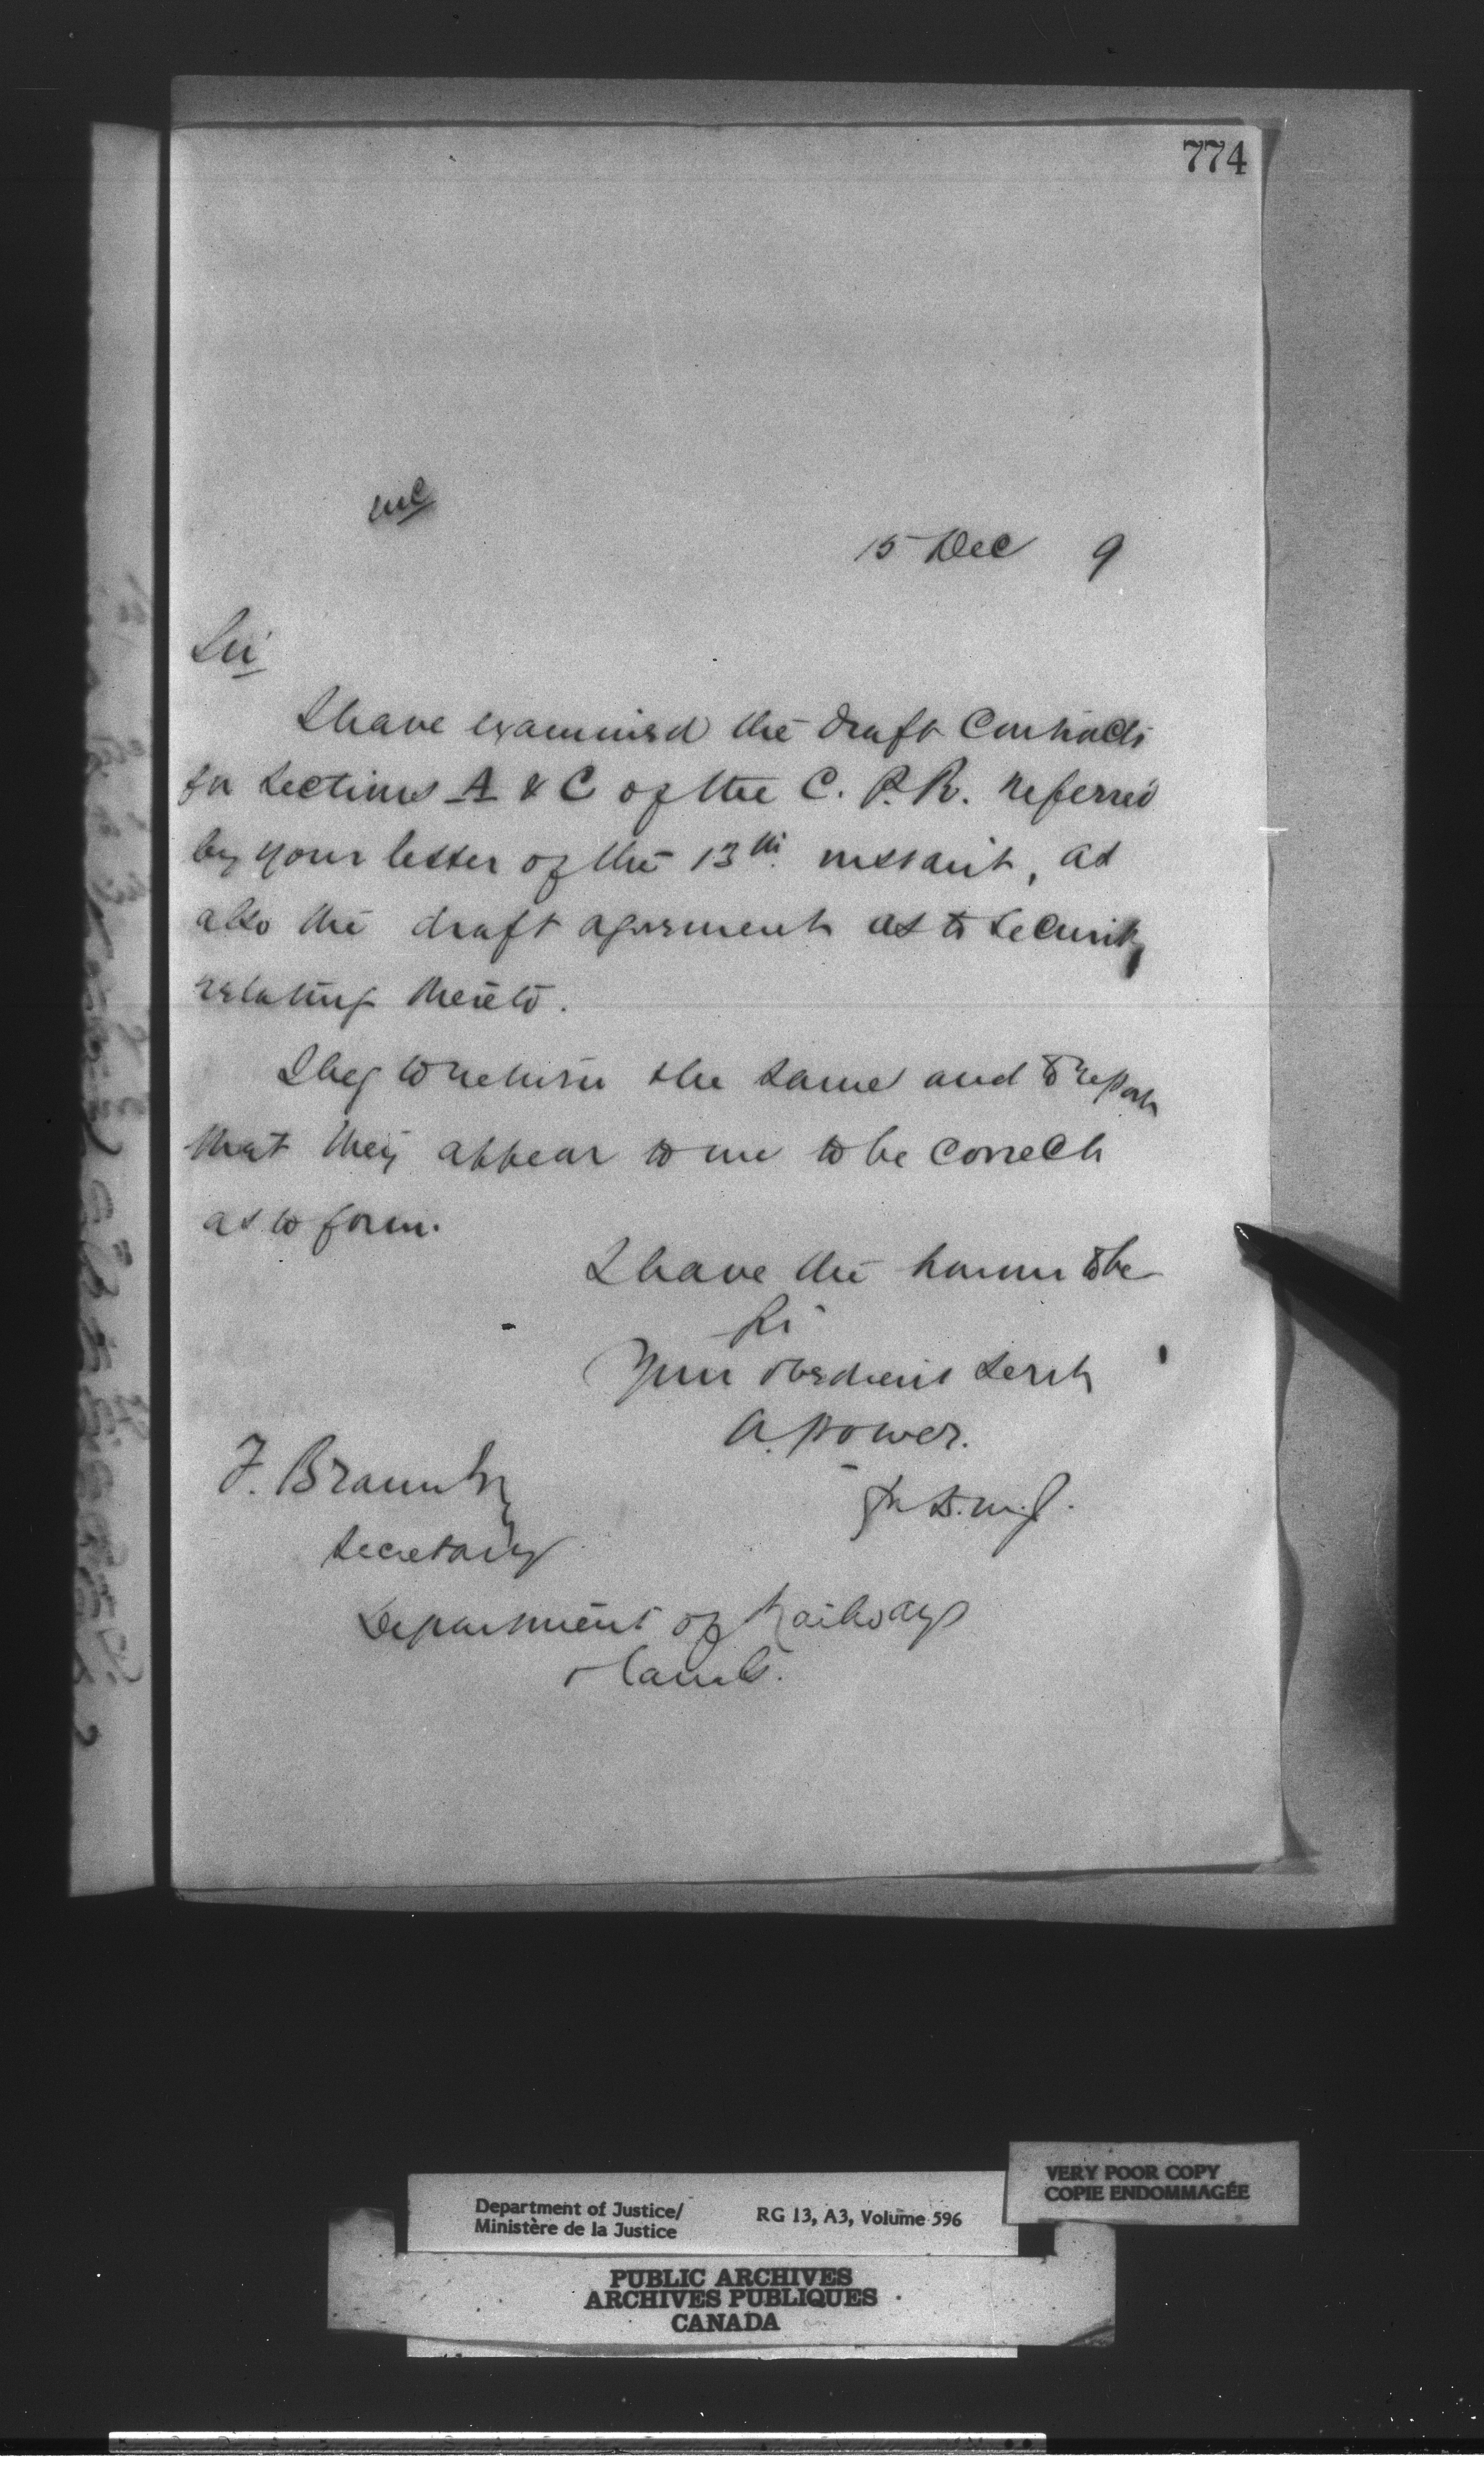 774
15 Dec 9
Sir
I have examined the draft Contracts
for Sections A & C of the C. P. R. referred
by your letter of the 13th instant, as
also the draft agreement as to Security
relating thereto.
I beg to return the same and to report
that they appear to me to be correct
as to form.
I have the honor to be
Sir
Your obedient Servt
A. Power.
for D.M.J.
F. Braun Esq
Secretary
Department of Railways
& Canals.
VERY POOR COPY
COPIE ENDOMMAGÉE
Department of Justice/
Ministère de la Justice
RG 13, A3, Volume 596
PUBLIC ARCHIVES
ARCHIVES PUBLIQUES
CANADA